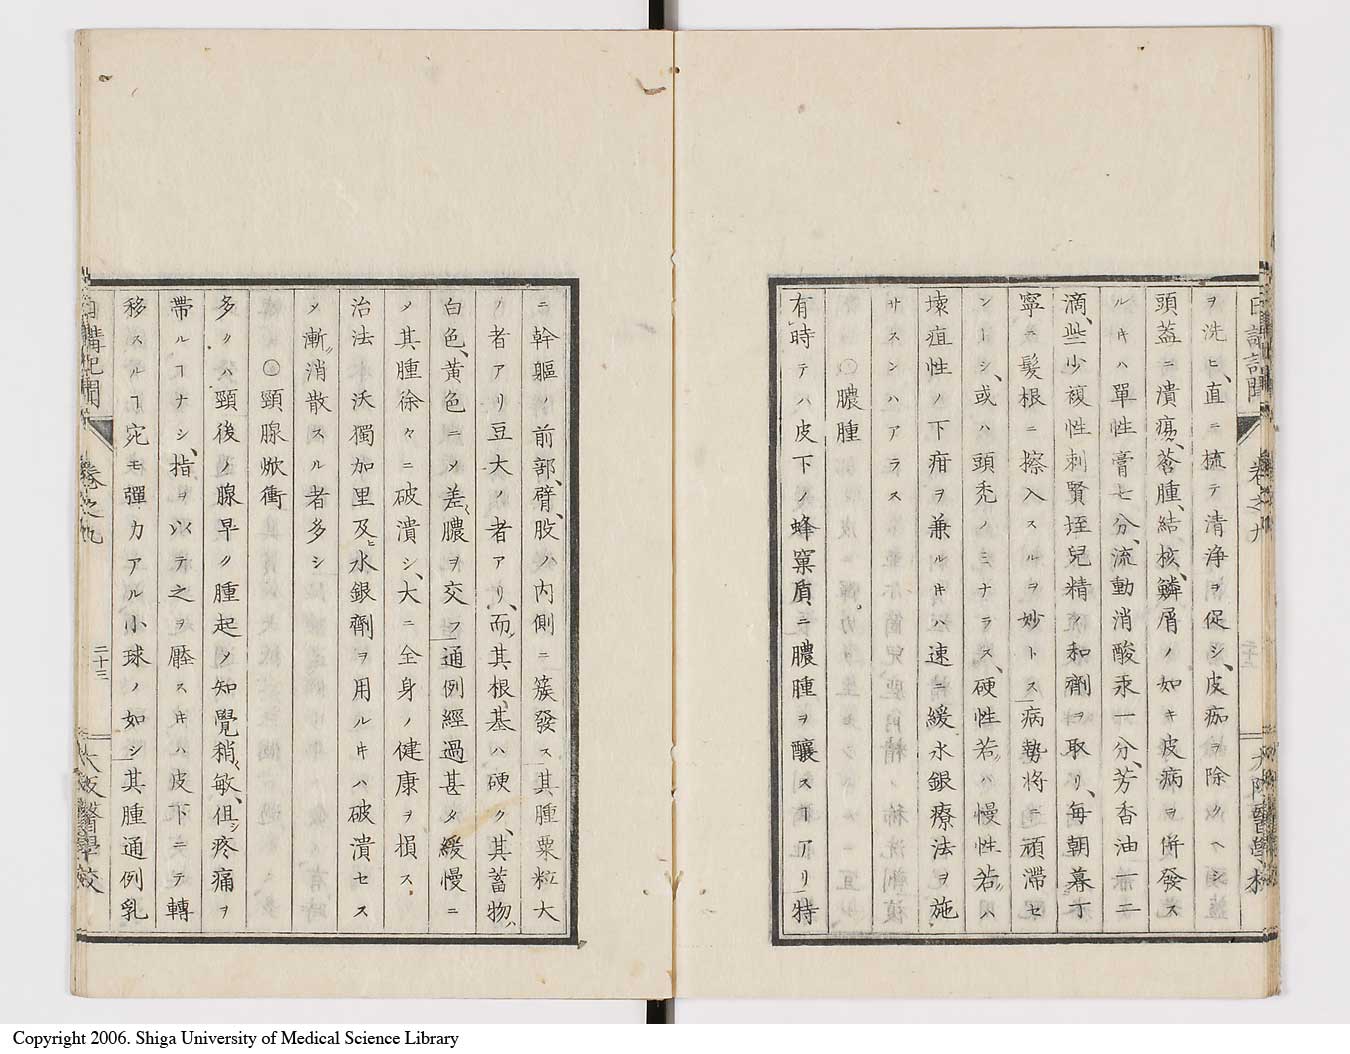 ヲ洗ヒ、直ニ梳テ清浄ヲ促シ、皮痂ヲ除クヘシ
頭蓋ニ潰瘍、菩腫、結核、鱗屑ノ如キ皮病ヲ併發ス
ルキハ單性膏七分、流動消酸汞一分、芳香油一二
滴、些少複性刺賢垤兒精ノ和劑ヲ取リ、每朝暮丁
寧ニ髮根ニ擦入スルヲ妙トス病勢將ニ頑滯セ
ントシ、或ハ頭禿ノミナラス、硬性若ハ慢性若ハ
壊疽性ノ下疳ヲ兼ルキハ速ニ緩水銀療法ヲ施
サスンハアラス
○膿腫
有時テハ皮下ノ蜂窠質ニ膿腫ヲ釀スヿアリ特
卷之九
ニ幹軀ノ前部、臂、股ノ内側ニ簇發ス其腫粟粒大
ノ者アリ豆大ノ者アリ、而其根基ハ硬ク、其蓄物、
白色、黃色ニメ差膿ヲ交フ通例經過甚タ緩慢ニ
メ其腫徐々ニ破潰シ、大ニ全身ノ健康ヲ損ス
治法 沃獨加里及ヒ水銀劑ヲ用ルキハ破潰セス
メ漸消散スル者多シ
○頸腺焮衝
多クハ頸後ノ腺早ク腫起メ知覺稍敏、但シ疼痛ヲ
帶ルヿナシ、指ヲ以テ之ヲ壓スキハ皮下ニテ轉
移スルヿ宛モ彈力アル小球ノ如シ其腫通例乳
日講記聞 卷之九 二十三 大阪醫學校
Copyright 2006. Shiga University of Medical Science Library